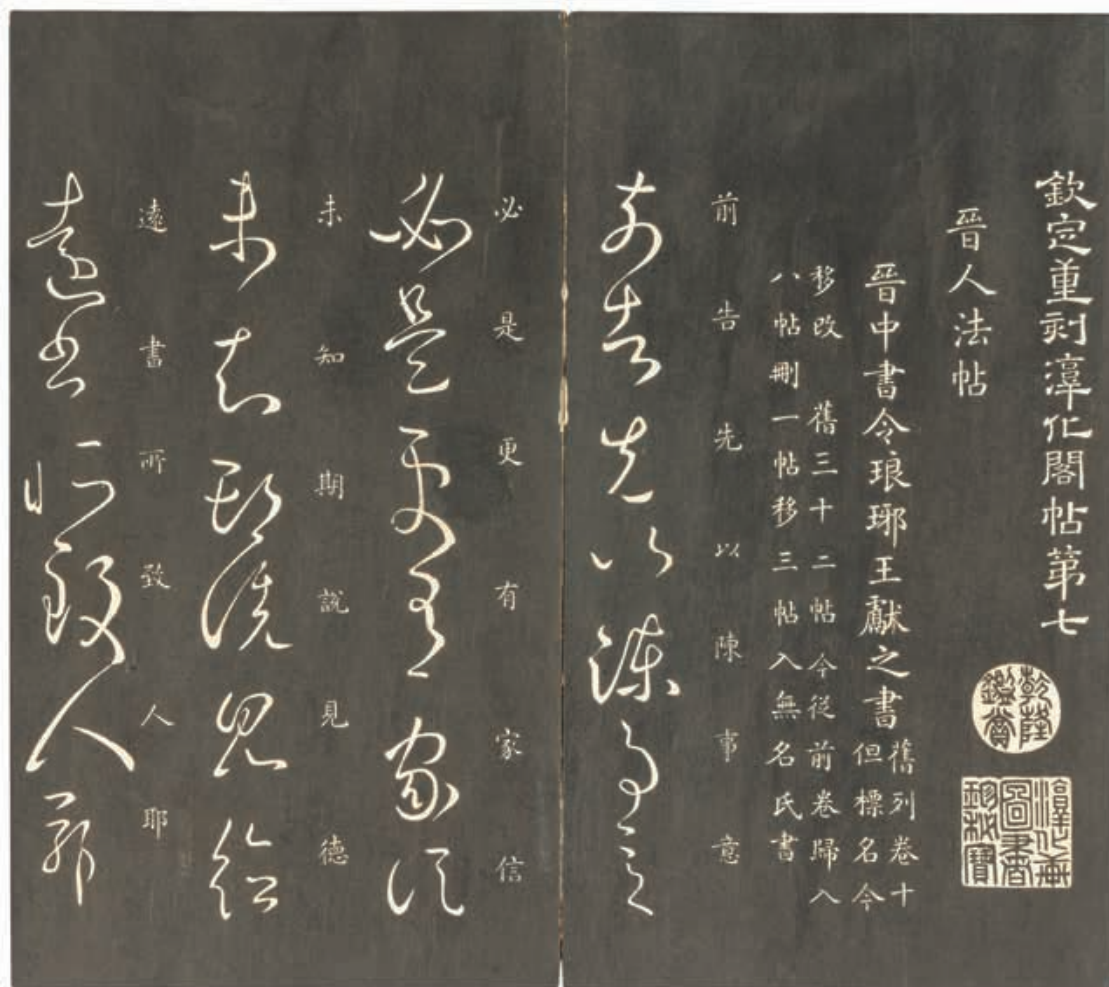 欽定重刻淳化閣帖第七
乾隆鑑賞
淳化軒圖書珍秘寶
晉人法帖
晉中書令琅瑘王獻之書
舊列卷十
但標名今
移改 舊三十二帖今從前卷歸入
八帖刪一帖移三帖入無名氏書
前告先以陳事意
前告先以陳事意
必是更有家信
必是更有家信
未知期說見德
未知期說見德
遠書所致人耶
遠書所致人耶